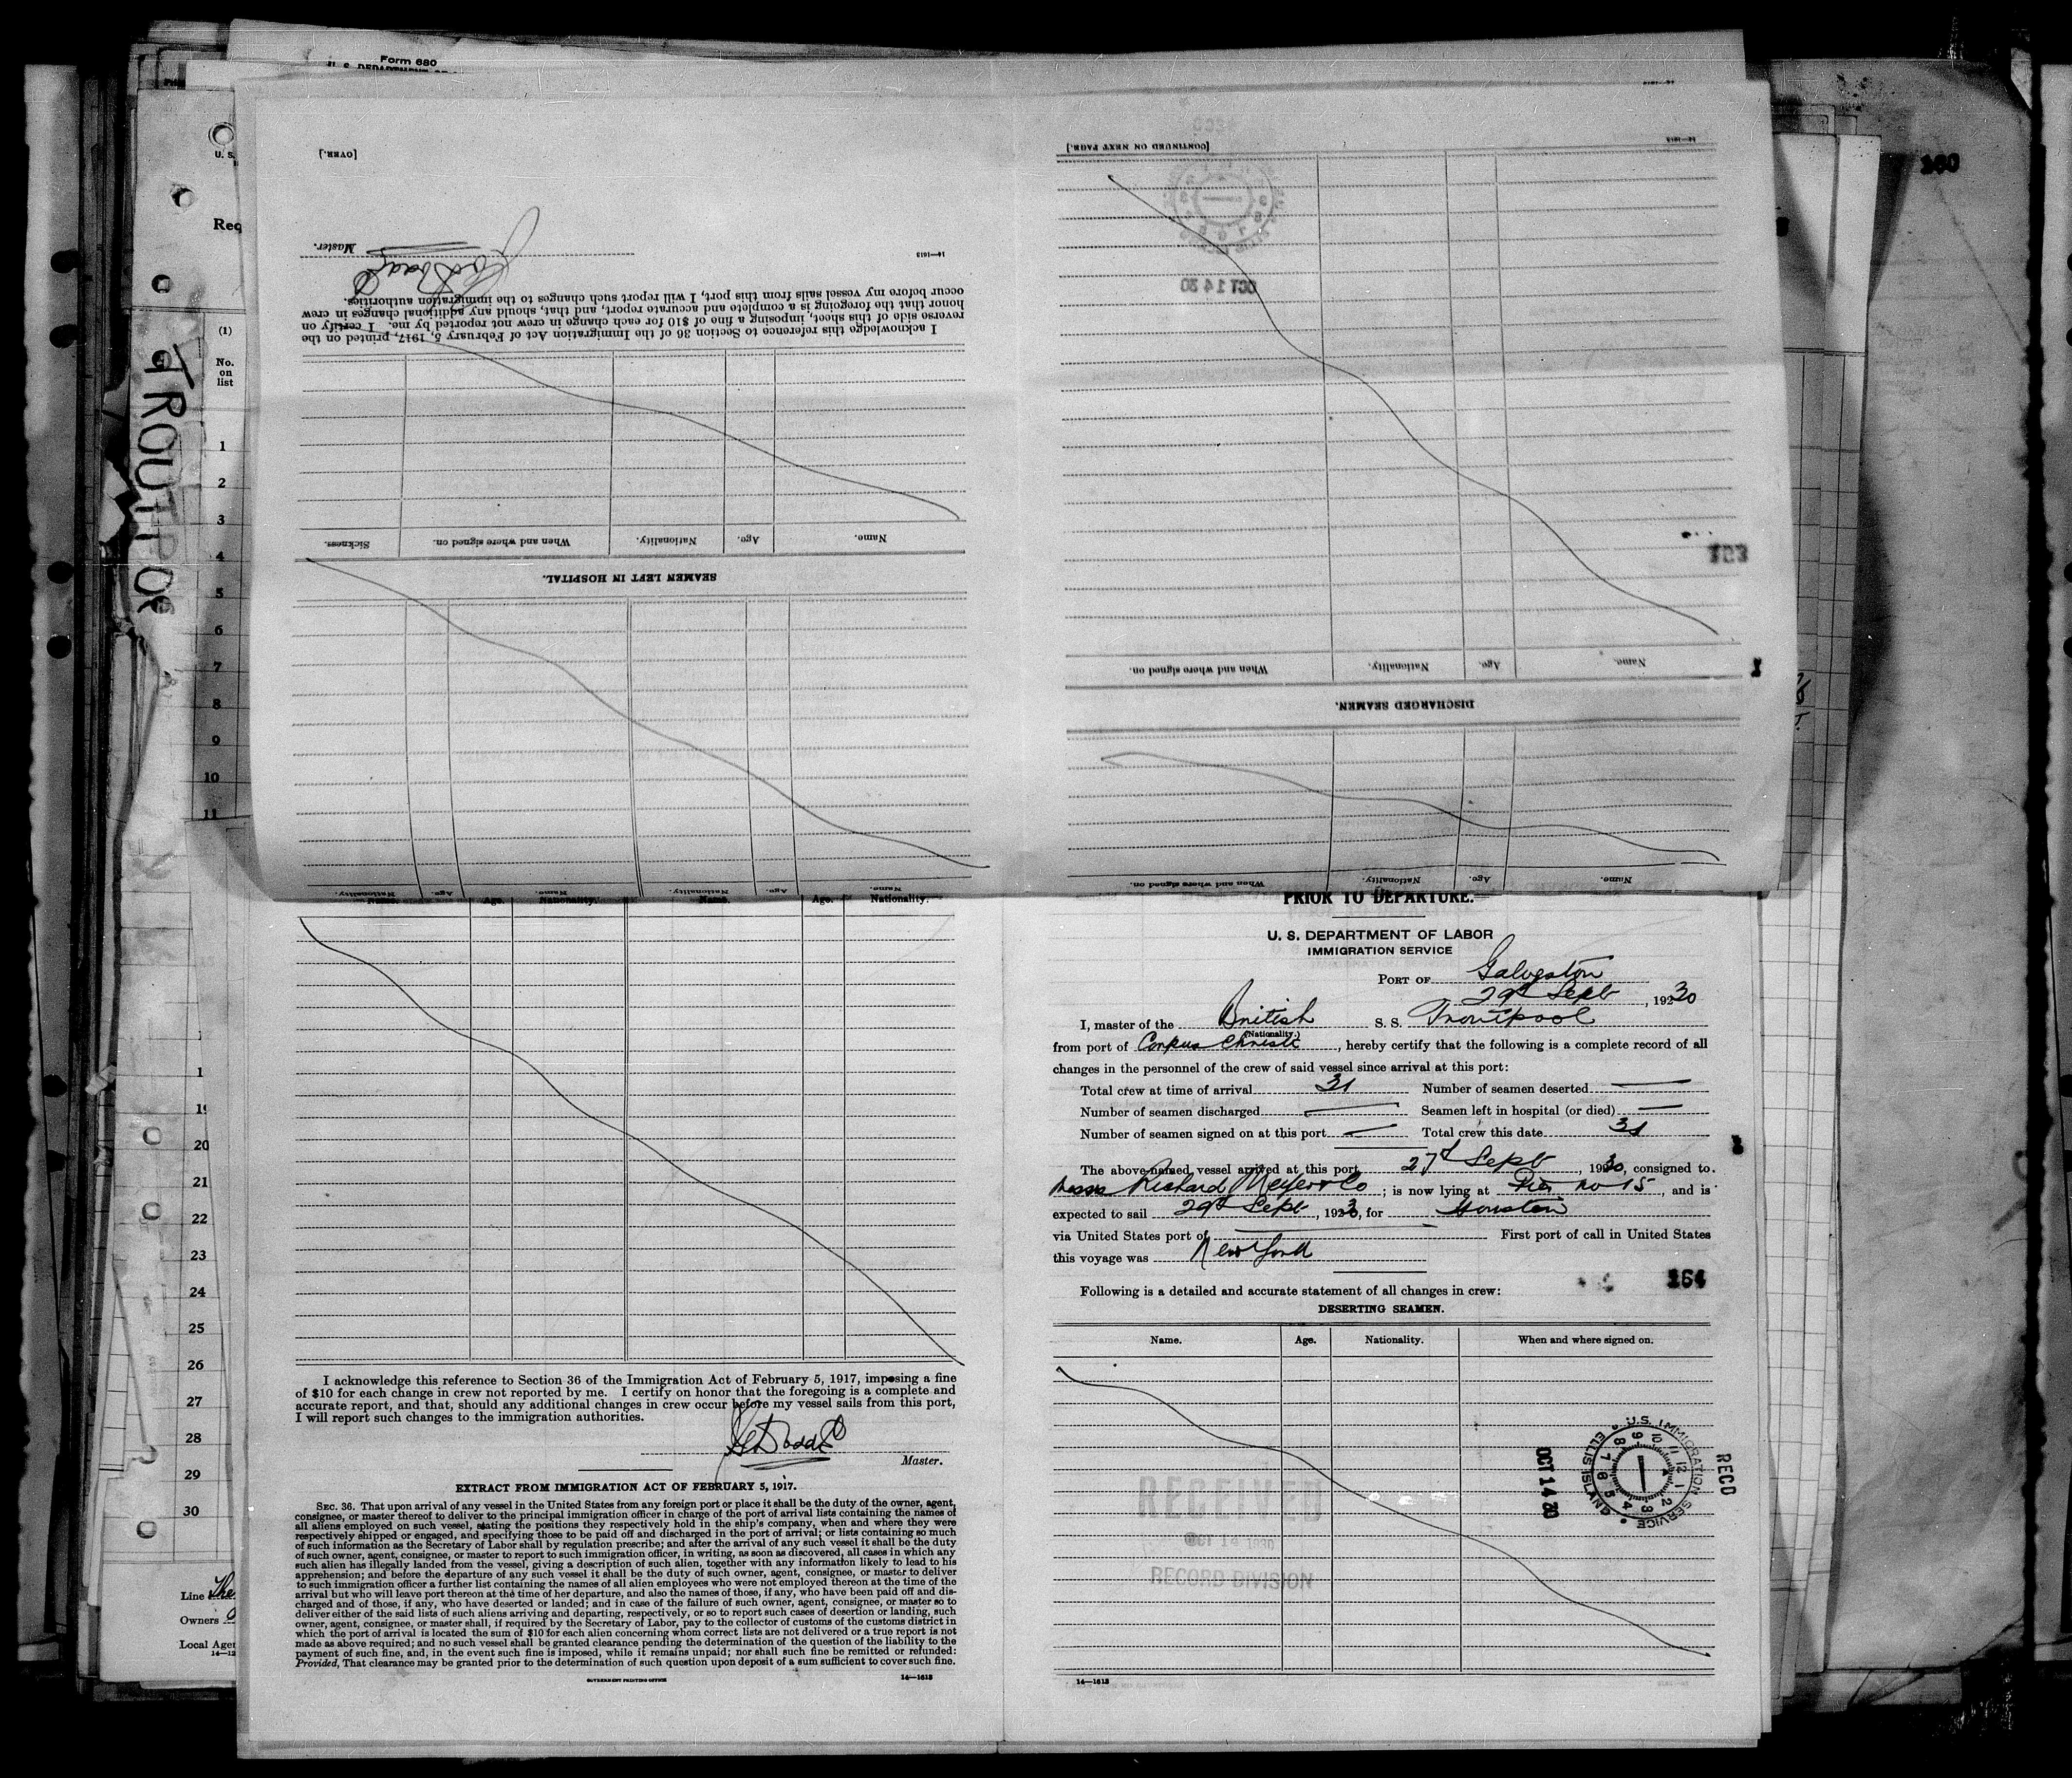 Form 680
U. S. DEPARTMENT OF
U. S.
Req
(1)
No.
on
list
1
2
3
4
5
6
7
8
9
10
11
1
19
20
21
22
23
24
25
26
27
28
29
30
Line The
Owners
Local Agen
14—12
TROUTPOO
160
[OVER.]
14—1613
Master.
I acknowledge this reference to Section 36 of the Immigration Act of February 5, 1917, printed on the
reverse side of this sheet, imposing a fine of $10 for each change in crew not reported by me. I certify on
honor that the foregoing is a complete and accurate report, and that, should any additional changes in crew
occur before my vessel sails from this port, I will report such changes to the immigration authorities.
SEAMEN LEFT IN HOSPITAL.
Name. Age. Nationality. When and where signed on. Sickness.
Name. Age. Nationality. Name. Age. Nationality.
[CONTINUED ON NEXT PAGE.]
14—1613
OCT 14 30
DISCHARGED SEAMEN.
Name. Age. Nationality. When and where signed on.
Name. Age. Nationality. When and where signed on.
Name. Age. Nationality. Name. Age. Nationality.
I acknowledge this reference to Section 36 of the Immigration Act of February 5, 1917, imposing a fine
of $10 for each change in crew not reported by me. I certify on honor that the foregoing is a complete and
accurate report, and that, should any additional changes in crew occur before my vessel sails from this port,
I will report such changes to the immigration authorities.
Master.
EXTRACT FROM IMMIGRATION ACT OF FEBRUARY 5, 1917.
SEC. 36. That upon arrival of any vessel in the United States from any foreign port or place it shall be the duty of the owner, agent,
consignee, or master thereof to deliver to the principal immigration officer in charge of the port of arrival lists containing the names of
all aliens employed on such vessel, stating the positions they respectively hold in the ship's company, when and where they were
respectively shipped or engaged, and specifying those to be paid off and discharged in the port of arrival; or lists containing so much
of such information as the Secretary of Labor shall by regulation prescribe; and after the arrival of any such vessel it shall be the duty
of such owner, agent, consignee, or master to report to such immigration officer, in writing, as soon as discovered, all cases in which any
such alien has illegally landed from the vessel, giving a description of such alien, together with any information likely to lead to his
apprehension; and before the departure of any such vessel it shall be the duty of such owner, agent, consignee, or master to deliver
to such immigration officer a further list containing the names of all alien employees who were not employed thereon at the time of the
arrival but who will leave port thereon at the time of her departure, and also the names of those, if any, who have been paid off and dis-
charged and of those, if any, who have deserted or landed; and in case of the failure of such owner, agent, consignee, or master so to
deliver either of the said lists of such aliens arriving and departing, respectively, or so to report such cases of desertion or landing, such
owner, agent, consignee, or master shall, if required by the Secretary of Labor, pay to the collector of customs of the customs district in
which the port of arrival is located the sum of $10 for each alien concerning whom correct lists are not delivered or a true report is not
made as above required; and no such vessel shall be granted clearance pending the determination of the question of the liability to the
payment of such fine, and, in the event such fine is imposed, while it remains unpaid; nor shall such fine be remitted or refunded:
Provided, That clearance may be granted prior to the determination of such question upon deposit of a sum sufficient to cover such fine.
GOVERNMENT PRINTING OFFICE
14—1613
PRIOR TO DEPARTURE.
U. S. DEPARTMENT OF LABOR
IMMIGRATION SERVICE
PORT OF Galveston
29th Sept, 1930
I, master of the British S. S. Troutpool
(Nationality.)
from port of Corpus Christi, hereby certify that the following is a complete record of all
changes in the personnel of the crew of said vessel since arrival at this port:
Total crew at time of arrival 31 Number of seamen deserted —
Number of seamen discharged — Seamen left in hospital (or died) —
Number of seamen signed on at this port — Total crew this date 31
The above-named vessel arrived at this port 27th Sept, 1930, consigned to
Messrs Richard Meyer & Co; is now lying at Pier no 15, and is
expected to sail 29th Sept, 1930, for Houston
via United States port of — First port of call in United States
this voyage was New York
164
Following is a detailed and accurate statement of all changes in crew:
DESERTING SEAMEN.
Name. Age. Nationality. When and where signed on.
RECEIVED
OCT 14 1930
RECORD DIVISION
U.S. IMMIGRATION SERVICE ELLIS ISLAND
OCT 14 30
RECD
14—1613